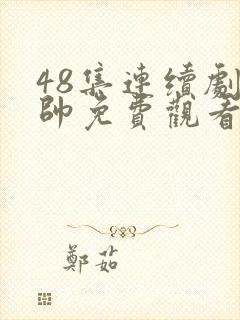 48集連續劇
帥免費觀看
鄭茹